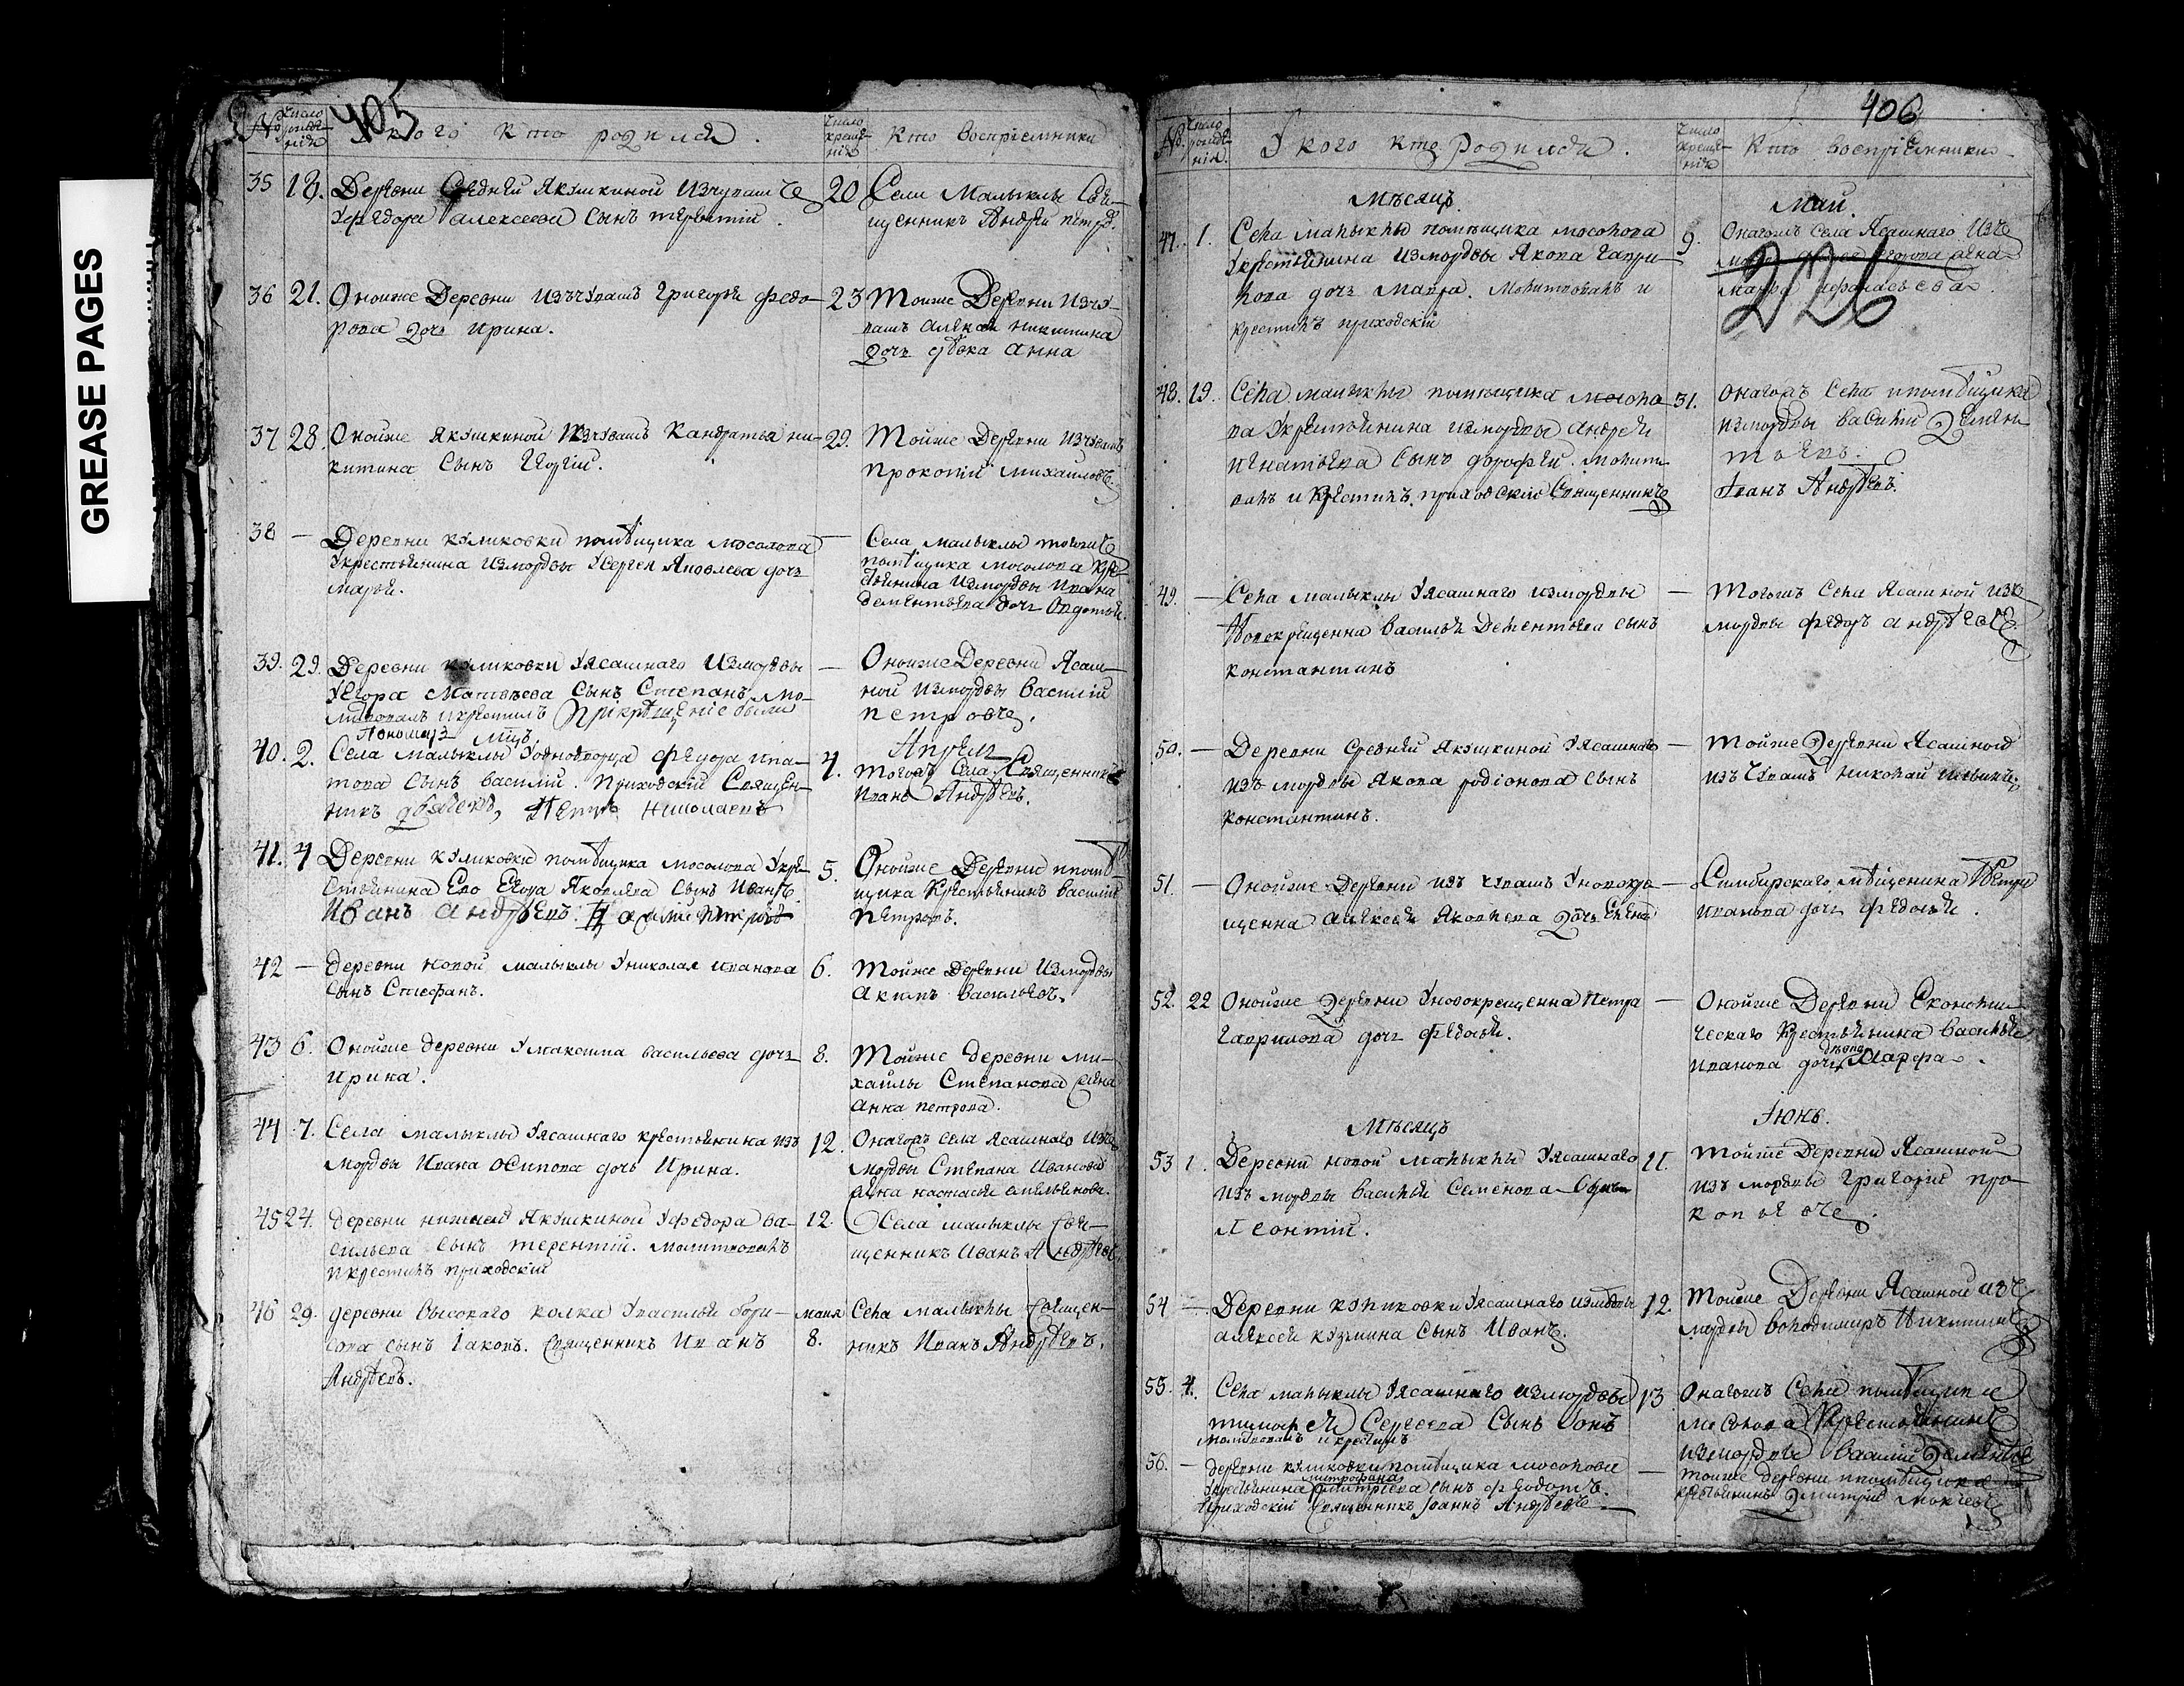 GREASE PAGES
405
№
число рожде-
нія
У кого кто родился.
число
креще-
нія
Кто воспріемники
35
18.
Деревни Средней Якушкиной изчувашъ
Уфедора алексеева сынъ терентій.
20
Села Малыклы Свя-
щенникъ Андрей петро.
36
21.
Оноиже Деревни изъчувашъ григорья федо-
рова дочь ирина.
23
Тоиже Деревни изчу-
вашъ алексея никитина
дочь девка анна
37
28.
Оноиже якушкиной изчувашъ кандратья ни-
китина сынъ Георгіи.
29.
Тоиже Деревни изчувашъ
прокопіи михаиловъ.
38
—
Деревни куликовки помѣщика мосолова
Укрестьянина измордвы Сергея Яковлева дочь
марья.
—
Села малыклы тогожъ
помѣщика мосолова кре-
стьянина измордвы ивана
дементьева дочь Овдотья.
39.
29.
Деревни куликовки Уясашнаго измордвы
Уегора Матвѣева сынъ Степанъ. мо-
литвовалъ икрестилъ прикрещеніе были
Пономарь
—
Оноиже Деревни Ясаш-
ной измордвы Василіи
петровъ.
Мцъ
Апрель
40.
2.
Села малыклы Уоднодворца Федора ипа-
това сынъ василіи. Приходскіи Священ-
никъ дьячекъ, Петръ николаевъ
4.
тогожъ Села Священникъ
Иванъ Андрѣевъ.
41.
4
Деревни куликовки помѣщика мосолова Укре-
стьянина Его Егора Яковлева сынъ Иванъ.
Иванъ андрѣевъ.
5.
Оноиже Деревни помѣ-
щика Крестьянинъ василіи
Петровъ.
42
—
деревни новой малыклы Униколая иванова
сынъ Стефанъ.
6.
Тоиже Деревни измордвы
Акимъ васильевъ.
43
6.
Оноиже деревни Умаксима васильева дочь
ирина.
8.
Тоиже деревни ми-
хаилы Степанова жена
анна петрова.
44
7.
Села малыклы Уясашнаго крестьянина изъ
мордвы Ивана осипова дочь Ирина.
12.
Онагожъ села ясашнаго изъ
мордвы Степана Иванова
жена настасья емельянова.
45
24.
деревни нижней якушкиной Уфедора ва-
сильева сынъ терентіи. молитвовалъ
икрестилъ приходскіи
12.
Села малыклы Свя-
щенникъ Иванъ Андрѣевъ
46
29.
деревни высокаго колка Увасилья бори-
сова сынъ Іаковъ. Священникъ Иванъ
Андрѣевъ.
маия
8.
Села малыклы Священ-
никъ Иванъ Андрѣевъ.
406
№
число рожде-
нія.
У кого кто родился.
число
креще-
нія
Кто воспріемники
Мѣсяцъ
Маи.
47.
1.
Села малыклы помѣщика мосолова
Укрестьянина измордвы Якова гаври-
лова дочь мавра. молитвовалъ и
крестилъ приходскіи
9.
Онагожъ села Ясашнаго изъ
226
48.
19.
Села малыклы помѣщика мосоло-
ва Укрестьянина измордвы андрея
игнатьева сынъ дорофеи. молитво-
валъ и крестилъ приходскіи священникъ
31.
онагожъ села помѣщика
измордвы василіи Демен-
тьевъ.
Іванъ Андрѣевъ.
49.
—
Села малыклы Уясашнаго измордвы
Новокрещенна василья дементьева сынъ
константинъ
—
тогожъ Села Ясашной изъ
мордвы федоръ андрѣевъ
50.
—
Деревни средней якушкиной Уясашнаго
изъ мордвы Якова родіонова сынъ
константинъ.
—
Тоиже Деревни Ясашной
изъ чувашъ николай ильинъ.
51.
—
Оноиже Деревни изъ чувашъ Уновокре-
щенна алексея Яковлева дочь елена
—
Симбирскаго мѣщенина Петра
иванова дочь федосья.
52.
22
Оноиже Деревни Уновокрещенна петра
гаврилова дочь федосья.
—
Оноиже Деревни Економи-
ческаго крестьянина василья
иванова дочь девка Марфа.
Мѣсяцъ
Іюнь.
53
1.
Деревни новой малыклы Уясашнаго
изъ мордвы василья семенова сынъ
леонтіи.
11.
Тоиже Деревни Ясашной
изъ мордвы григореи про-
копьевъ.
54
—
Деревни куликовки Уясашнаго измордвы
алексея кузмина сынъ Иванъ.
12.
Тоиже Деревни Ясашной изъ
мордвы володимиръ Никитинъ
55.
4.
Села малыклы Уясашнаго измордвы
тимофея Сергеева сынъ
молитвовалъ и крестилъ
13
Онагожъ Села помѣщика
мосолова Крестьянинъ
измордвы василіи Деменьтьевъ
56.
—
деревни куликовки помѣщика мосолова
Укрестьянина митрофана дмитріева сынъ федотъ.
Приходскіи Священникъ Іоаннъ Андрѣевъ
—
тоиже деревни помѣщика
крестьянинъ Дмитріи